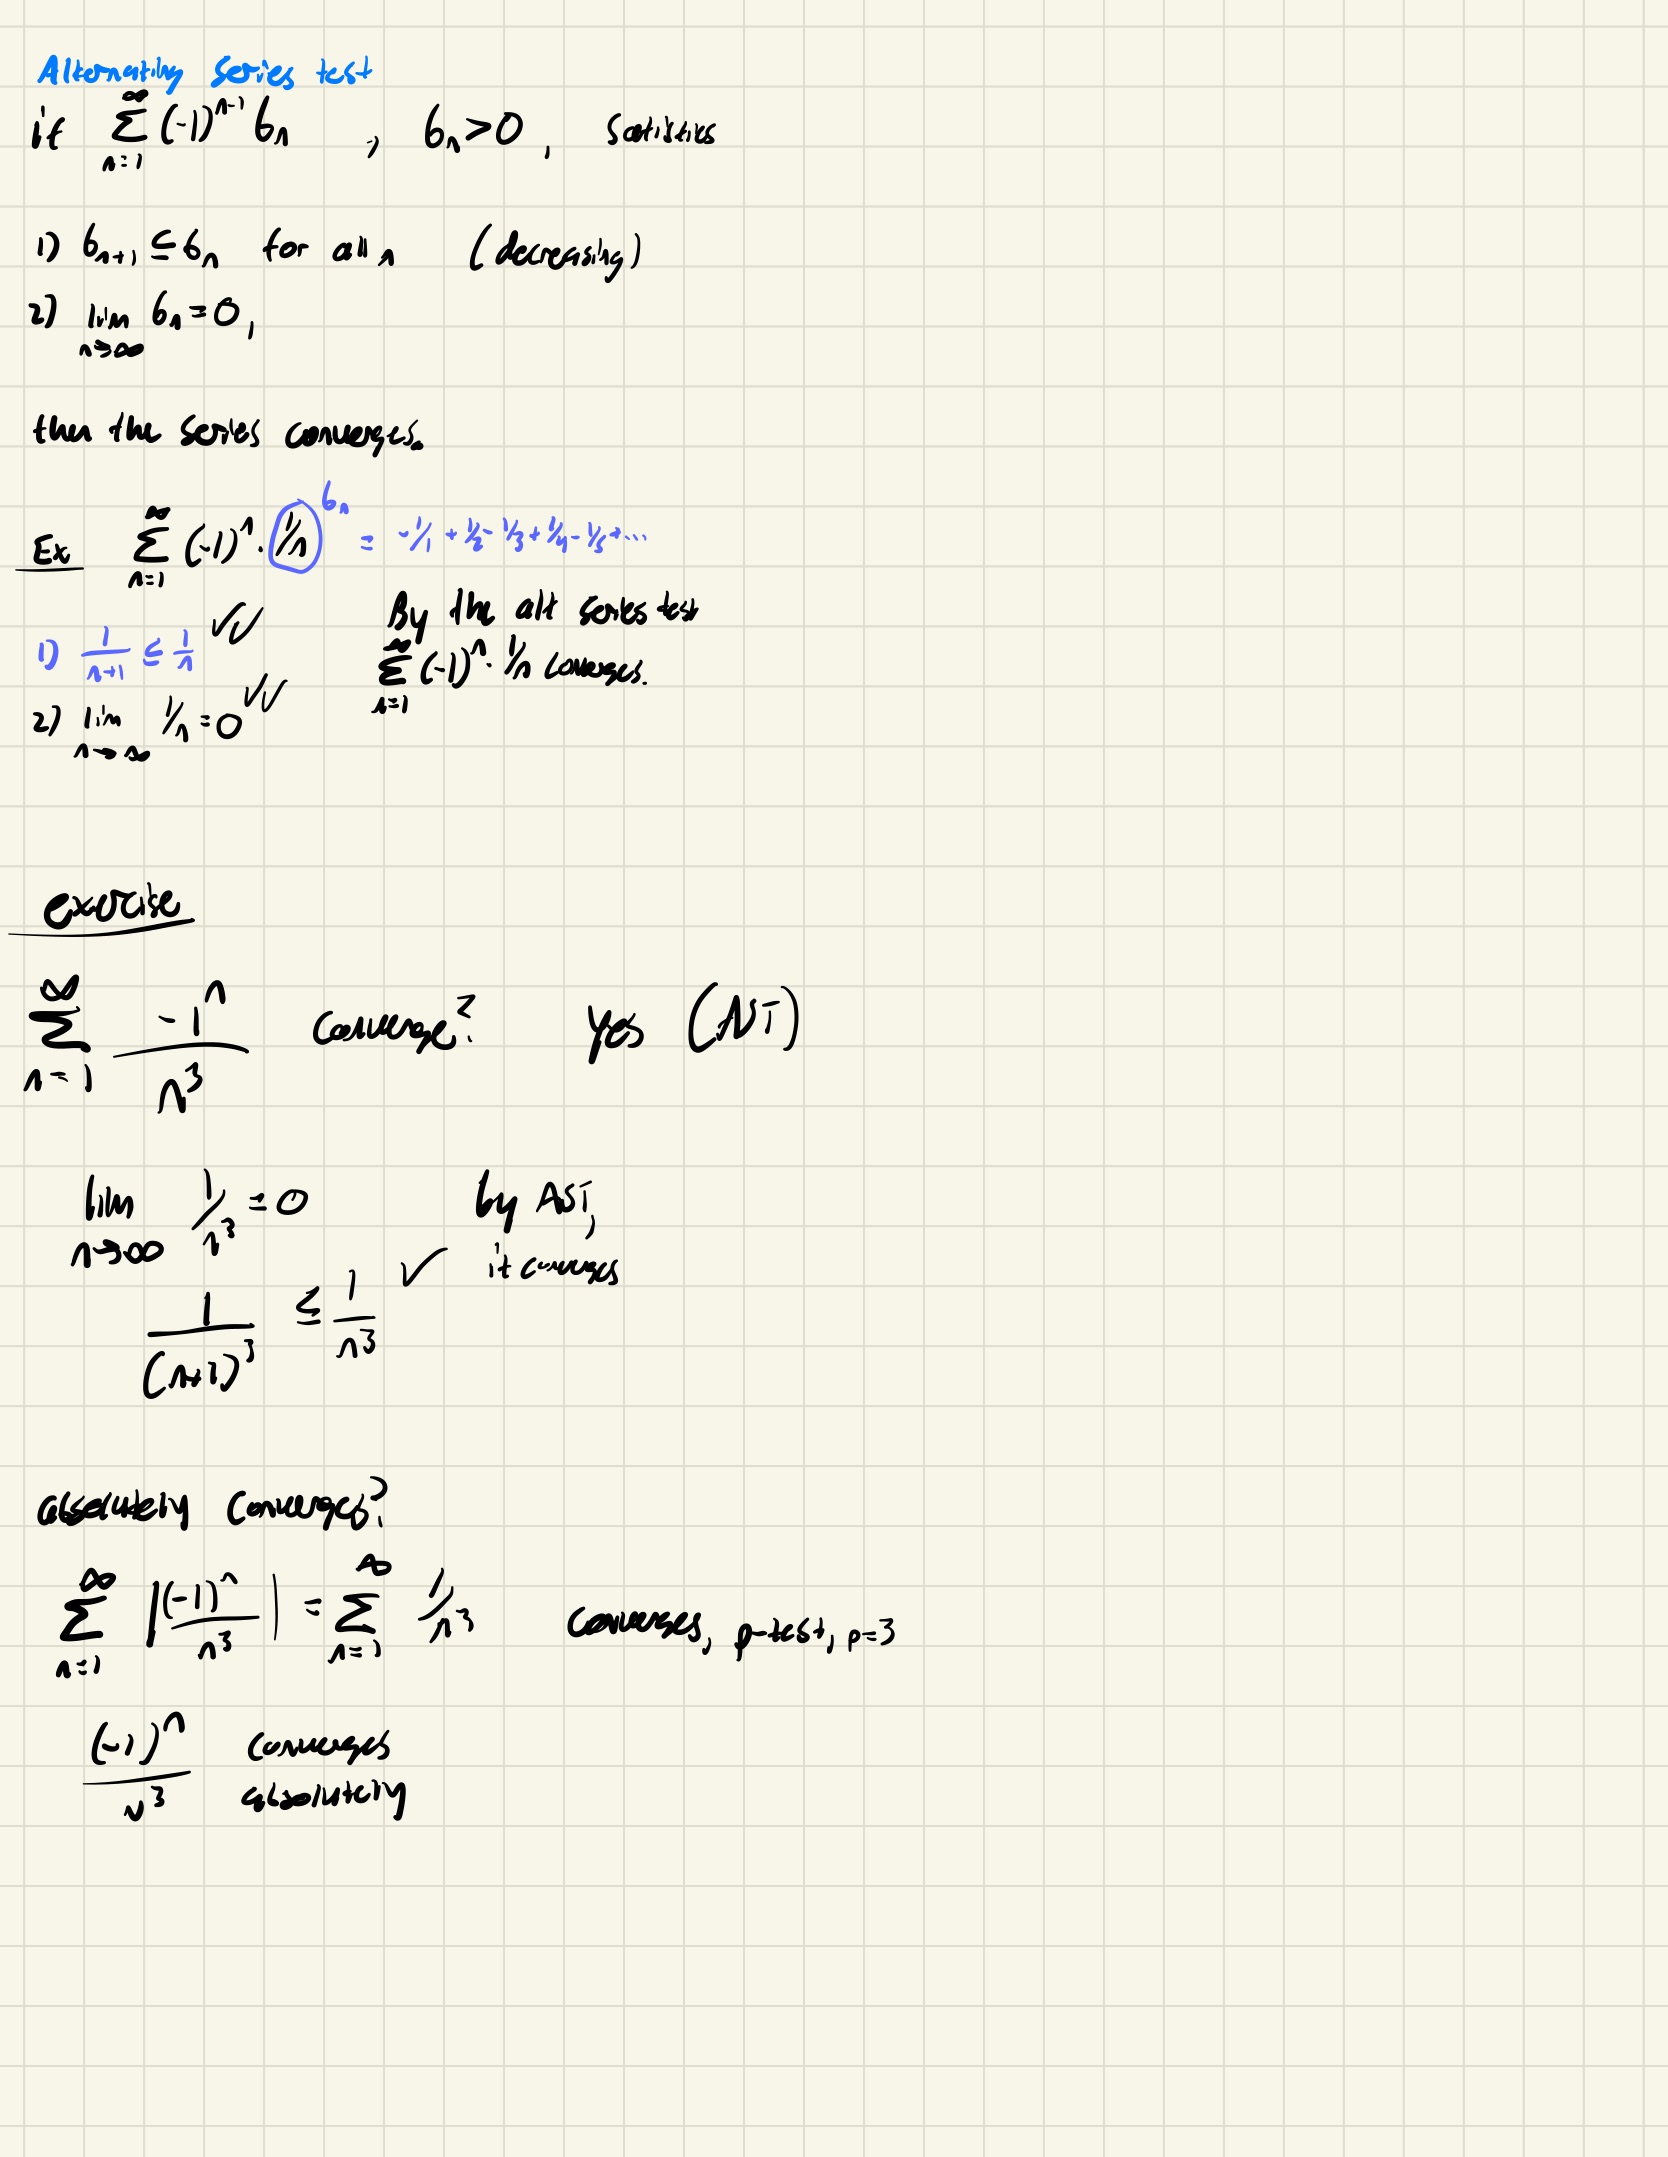 Alternating series test
if ∑_{n=1}^{∞} (-1)^{n-1} b_n , b_n > 0 , satisfies
1) b_{n+1} ≤ b_n for all n (decreasing)
2) lim_{n→∞} b_n = 0,
then the series converges.
Ex ∑_{n=1}^{∞} (-1)^n · 1/n b_n = -1/1 + 1/2 - 1/3 + 1/4 - 1/5 + ...
1) 1/(n+1) ≤ 1/n ✓✓
2) lim_{n→∞} 1/n = 0 ✓✓
By the alt series test
∑_{n=1}^{∞} (-1)^n · 1/n converges.
exercise
∑_{n=1}^{∞} -1^n / n^3 converge? Yes (AST)
lim_{n→∞} 1/n^3 = 0
1/(n+1)^3 ≤ 1/n^3 ✓
by AST,
it converges
absolutely converges?
∑_{n=1}^{∞} |(-1)^n / n^3| = ∑_{n=1}^{∞} 1/n^3 converges, p-test, p=3
(-1)^n / n^3 converges
absolutely